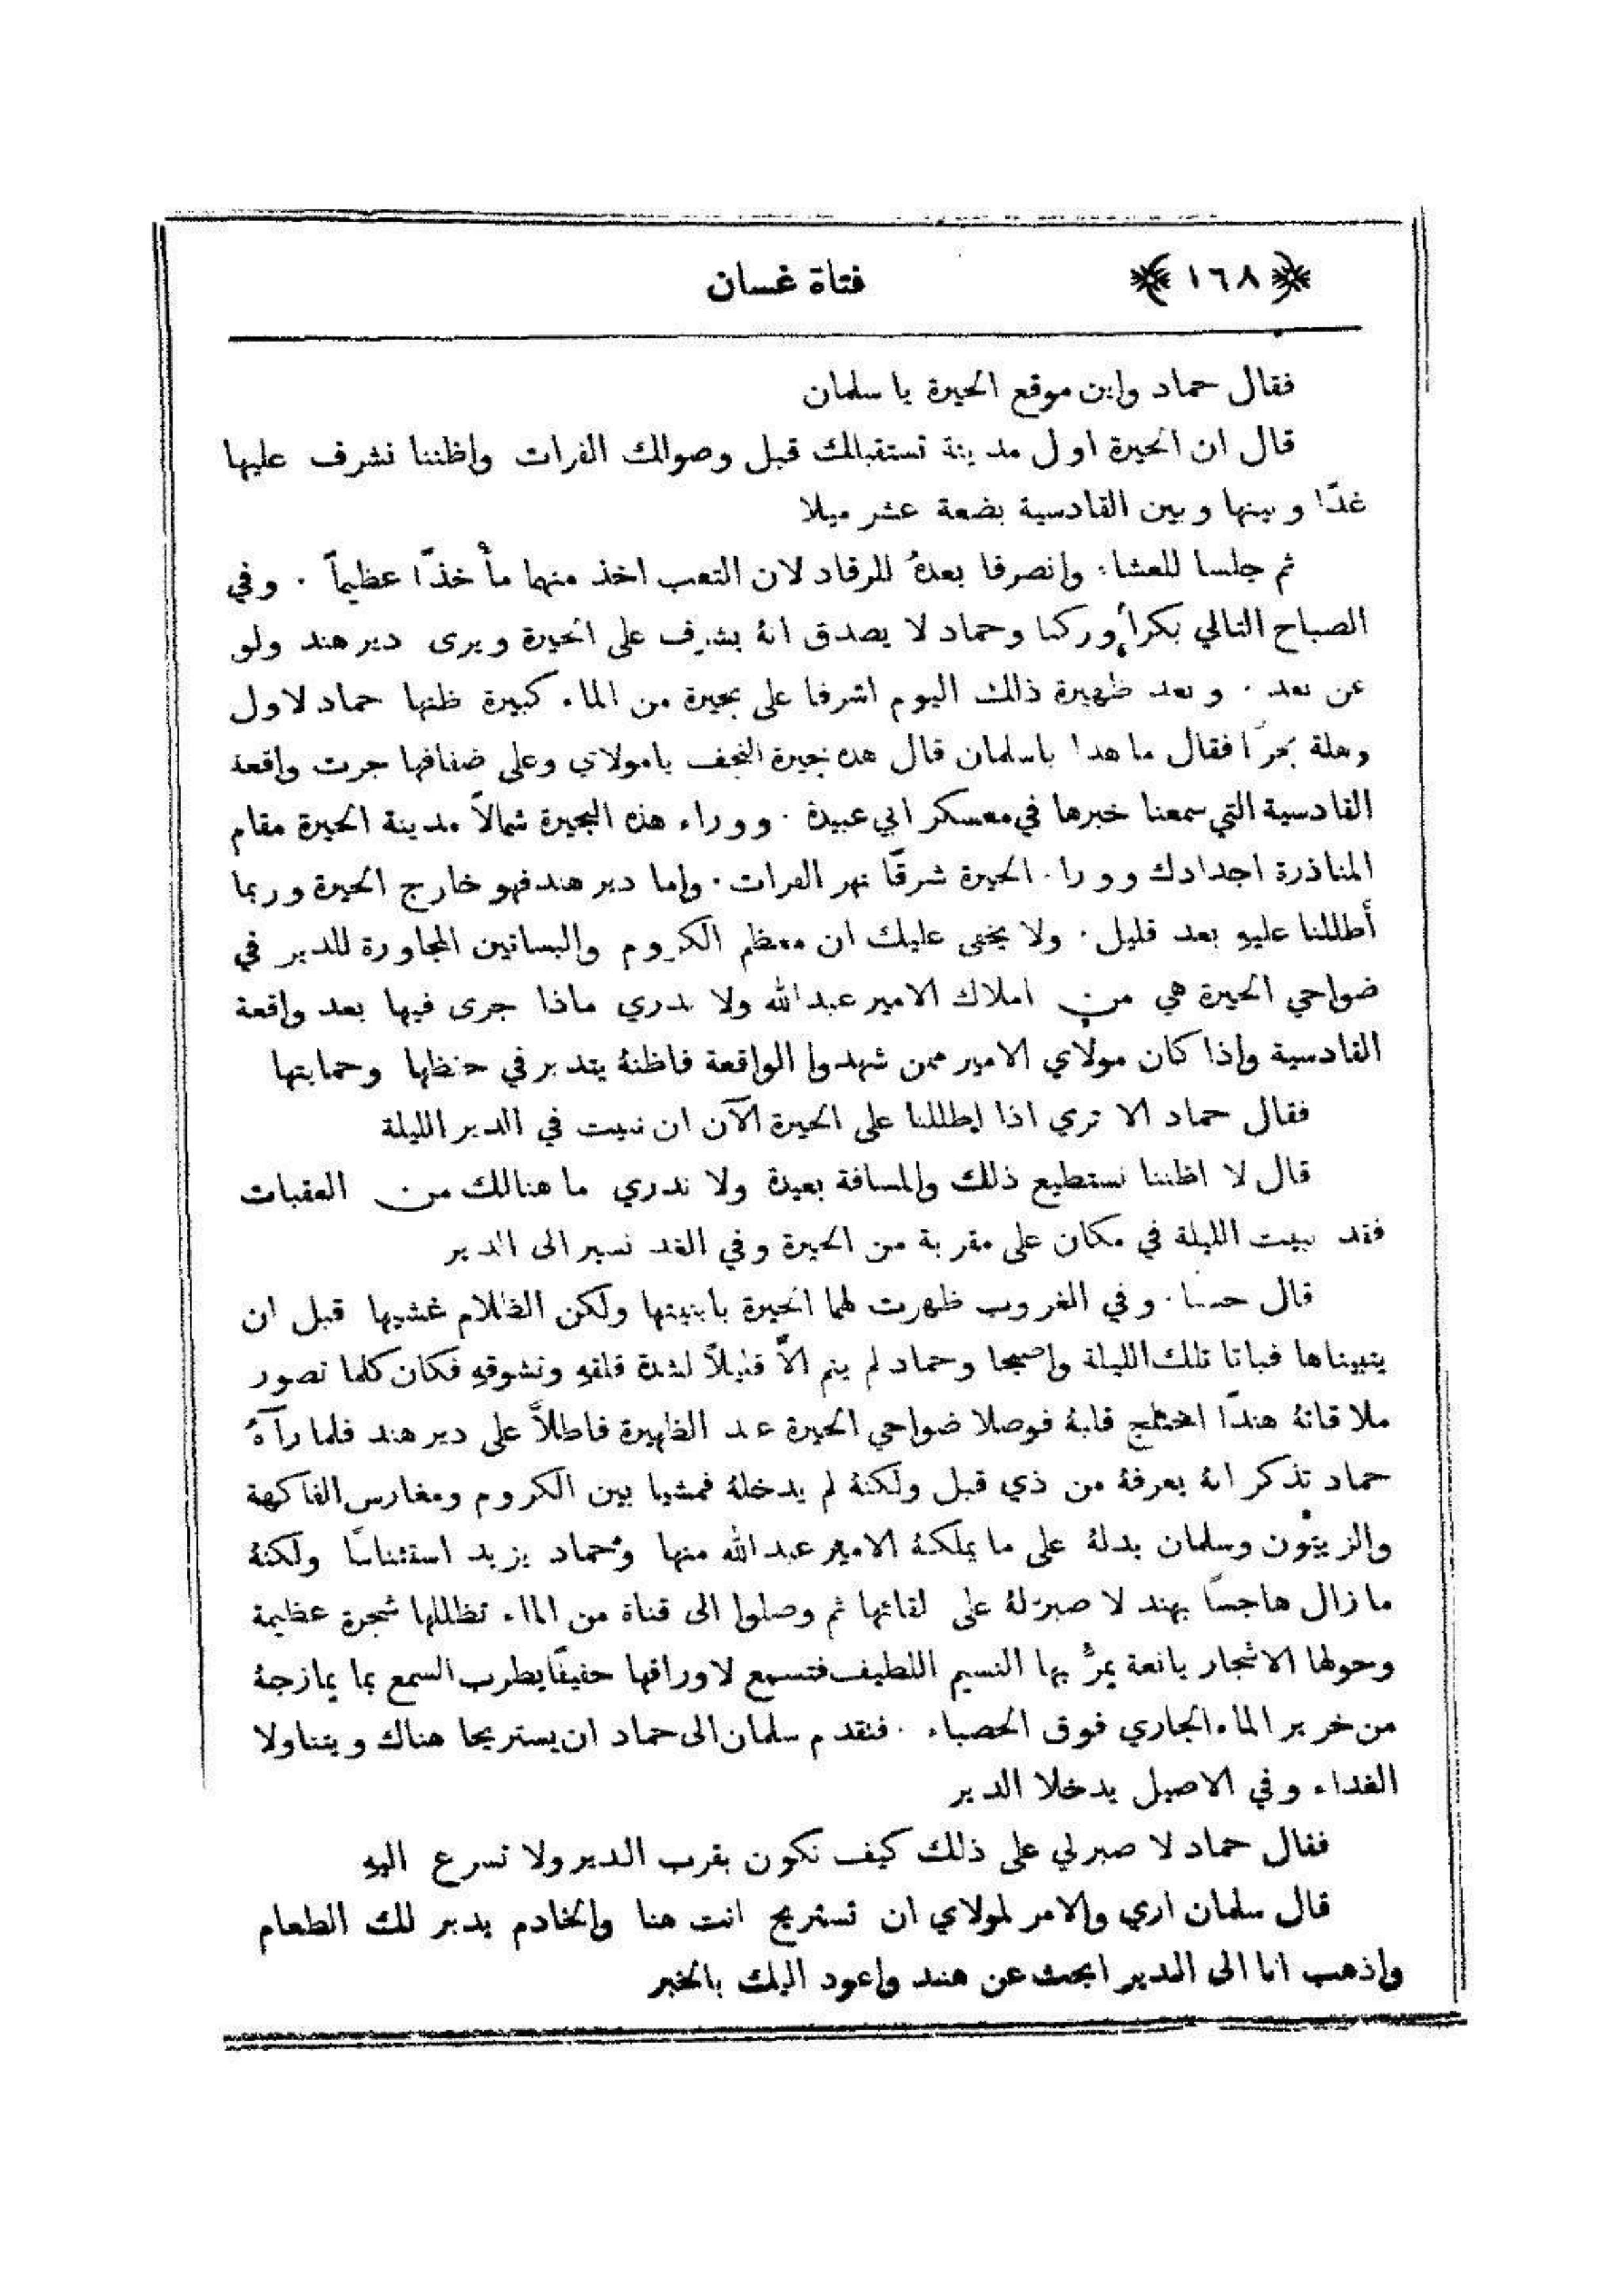 ﴿١٦٨﴾ فتاة غسان
فقال حماد واين موقع الحيرة يا سلمان
قال ان الحيرة اول مدينة تستقبالك قبل وصوالك الفرات واظننا نشرف عليها
غدًا وبينها وبين القادسية بضعة عشر ميلا
ثم جلسا للعشاء وانصرفا بعدهُ للرقاد لان التعب اخذ منهما مأخذًا عظيماً . وفي
الصباح التالي بكرا وركبا وحماد لا يصدق انهُ يشرف على الحيرة ويرى دير هند ولو
عن بعد . وبعد ظهيرة ذلك اليوم اشرفا على بحيرة من الماء كبيرة ظنها حماد لاول
وهلة بحرًا فقال ما هذا ياسلمان قال هذه بحيرة النجف يامولاي وعلى ضفافها جرت واقعة
القادسية التي سمعنا خبرها في معسكر ابي عبيدة . ووراء هذه البحيرة شمالاً مدينة الحيرة مقام
المناذرة اجدادك ووراء الحيرة شرقًا نهر الفرات . واما دير هند فهو خارج الحيرة وربما
أطللنا عليهِ بعد قليل . ولا يخفى عليك ان معظم الكروم والبساتين المجاورة للدير في
ضواحي الحيرة هي من املاك الامير عبد الله ولا ندري ماذا جرى فيها بعد واقعة
القادسية واذا كان مولاي الامير ممن شهدوا الواقعة فاظنهُ يتدبر في حفظها وحمايتها
فقال حماد الا تري اذا اطللنا على الحيرة الآن ان نبيت في الدير الليلة
قال لا اظننا نستطيع ذلك والمسافة بعيدة ولا ندري ما هنالك من العقبات
فقد نبيت الليلة في مكان على مقربة من الحيرة وفي الغد نسير الى الدير
قال حسنا . وفي الغروب ظهرت لهما الحيرة بابنيتها ولكن الظلام غشيها قبل ان
يتبيناها فباتا تلك الليلة واصبحا وحماد لم ينم الاَّ قليلاً لشدة قلقهِ وتشوقهِ فكان كلما تصور
ملاقاتهُ هندًا اختلج قلبهُ فوصلا ضواحي الحيرة عند الظهيرة فاطلاَّ على دير هند فلما رآهُ
حماد تذكر انهُ يعرفهُ من ذي قبل ولكنهُ لم يدخلهُ فمشيا بين الكروم ومغارس الفاكهة
والزيتون وسلمان يدلهُ على ما يملكهُ الامير عبد الله منها وحماد يزيد استئناسًا ولكنهُ
ما زال هاجسًا بهند لا صبر لهُ على لقائها ثم وصلوا الى قناة من الماء تظللها شجرة عظيمة
وحولها الاشجار يانعة يمرُّ بها النسيم اللطيف فتسمع لاوراقها حفيفًا يطرب السمع بما يمازجهُ
من خرير الماء الجاري فوق الحصباء . فتقدم سلمان الى حماد ان يستريحا هناك ويتناولا
الغداء وفي الاصيل يدخلا الدير
فقال حماد لا صبر لي على ذلك كيف نكون بقرب الدير ولا نسرع اليهِ
قال سلمان اري والامر لمولاي ان تستريح انت هنا والخادم يدبر لك الطعام
واذهب انا الى الدير ابحث عن هند واعود اليك بالخبر